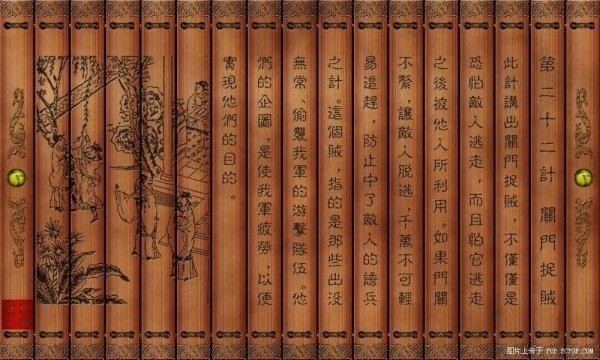 第二十二計　關門捉賊
此計講出關門捉賊，不僅僅是
恐怕敵人逃走，而且怕它逃走
之後被他人所利用。如果門關
不緊，讓敵人脱逃，千萬不可輕
易追趕，防止中了敵人的誘兵
之計。這個賊，指的是那些出沒
無常、偷襲我軍的游擊隊伍。他
們的企圖，是使我軍疲勞，以便
實現他們的目的。
图片上传于 POP.PCPOP.COM